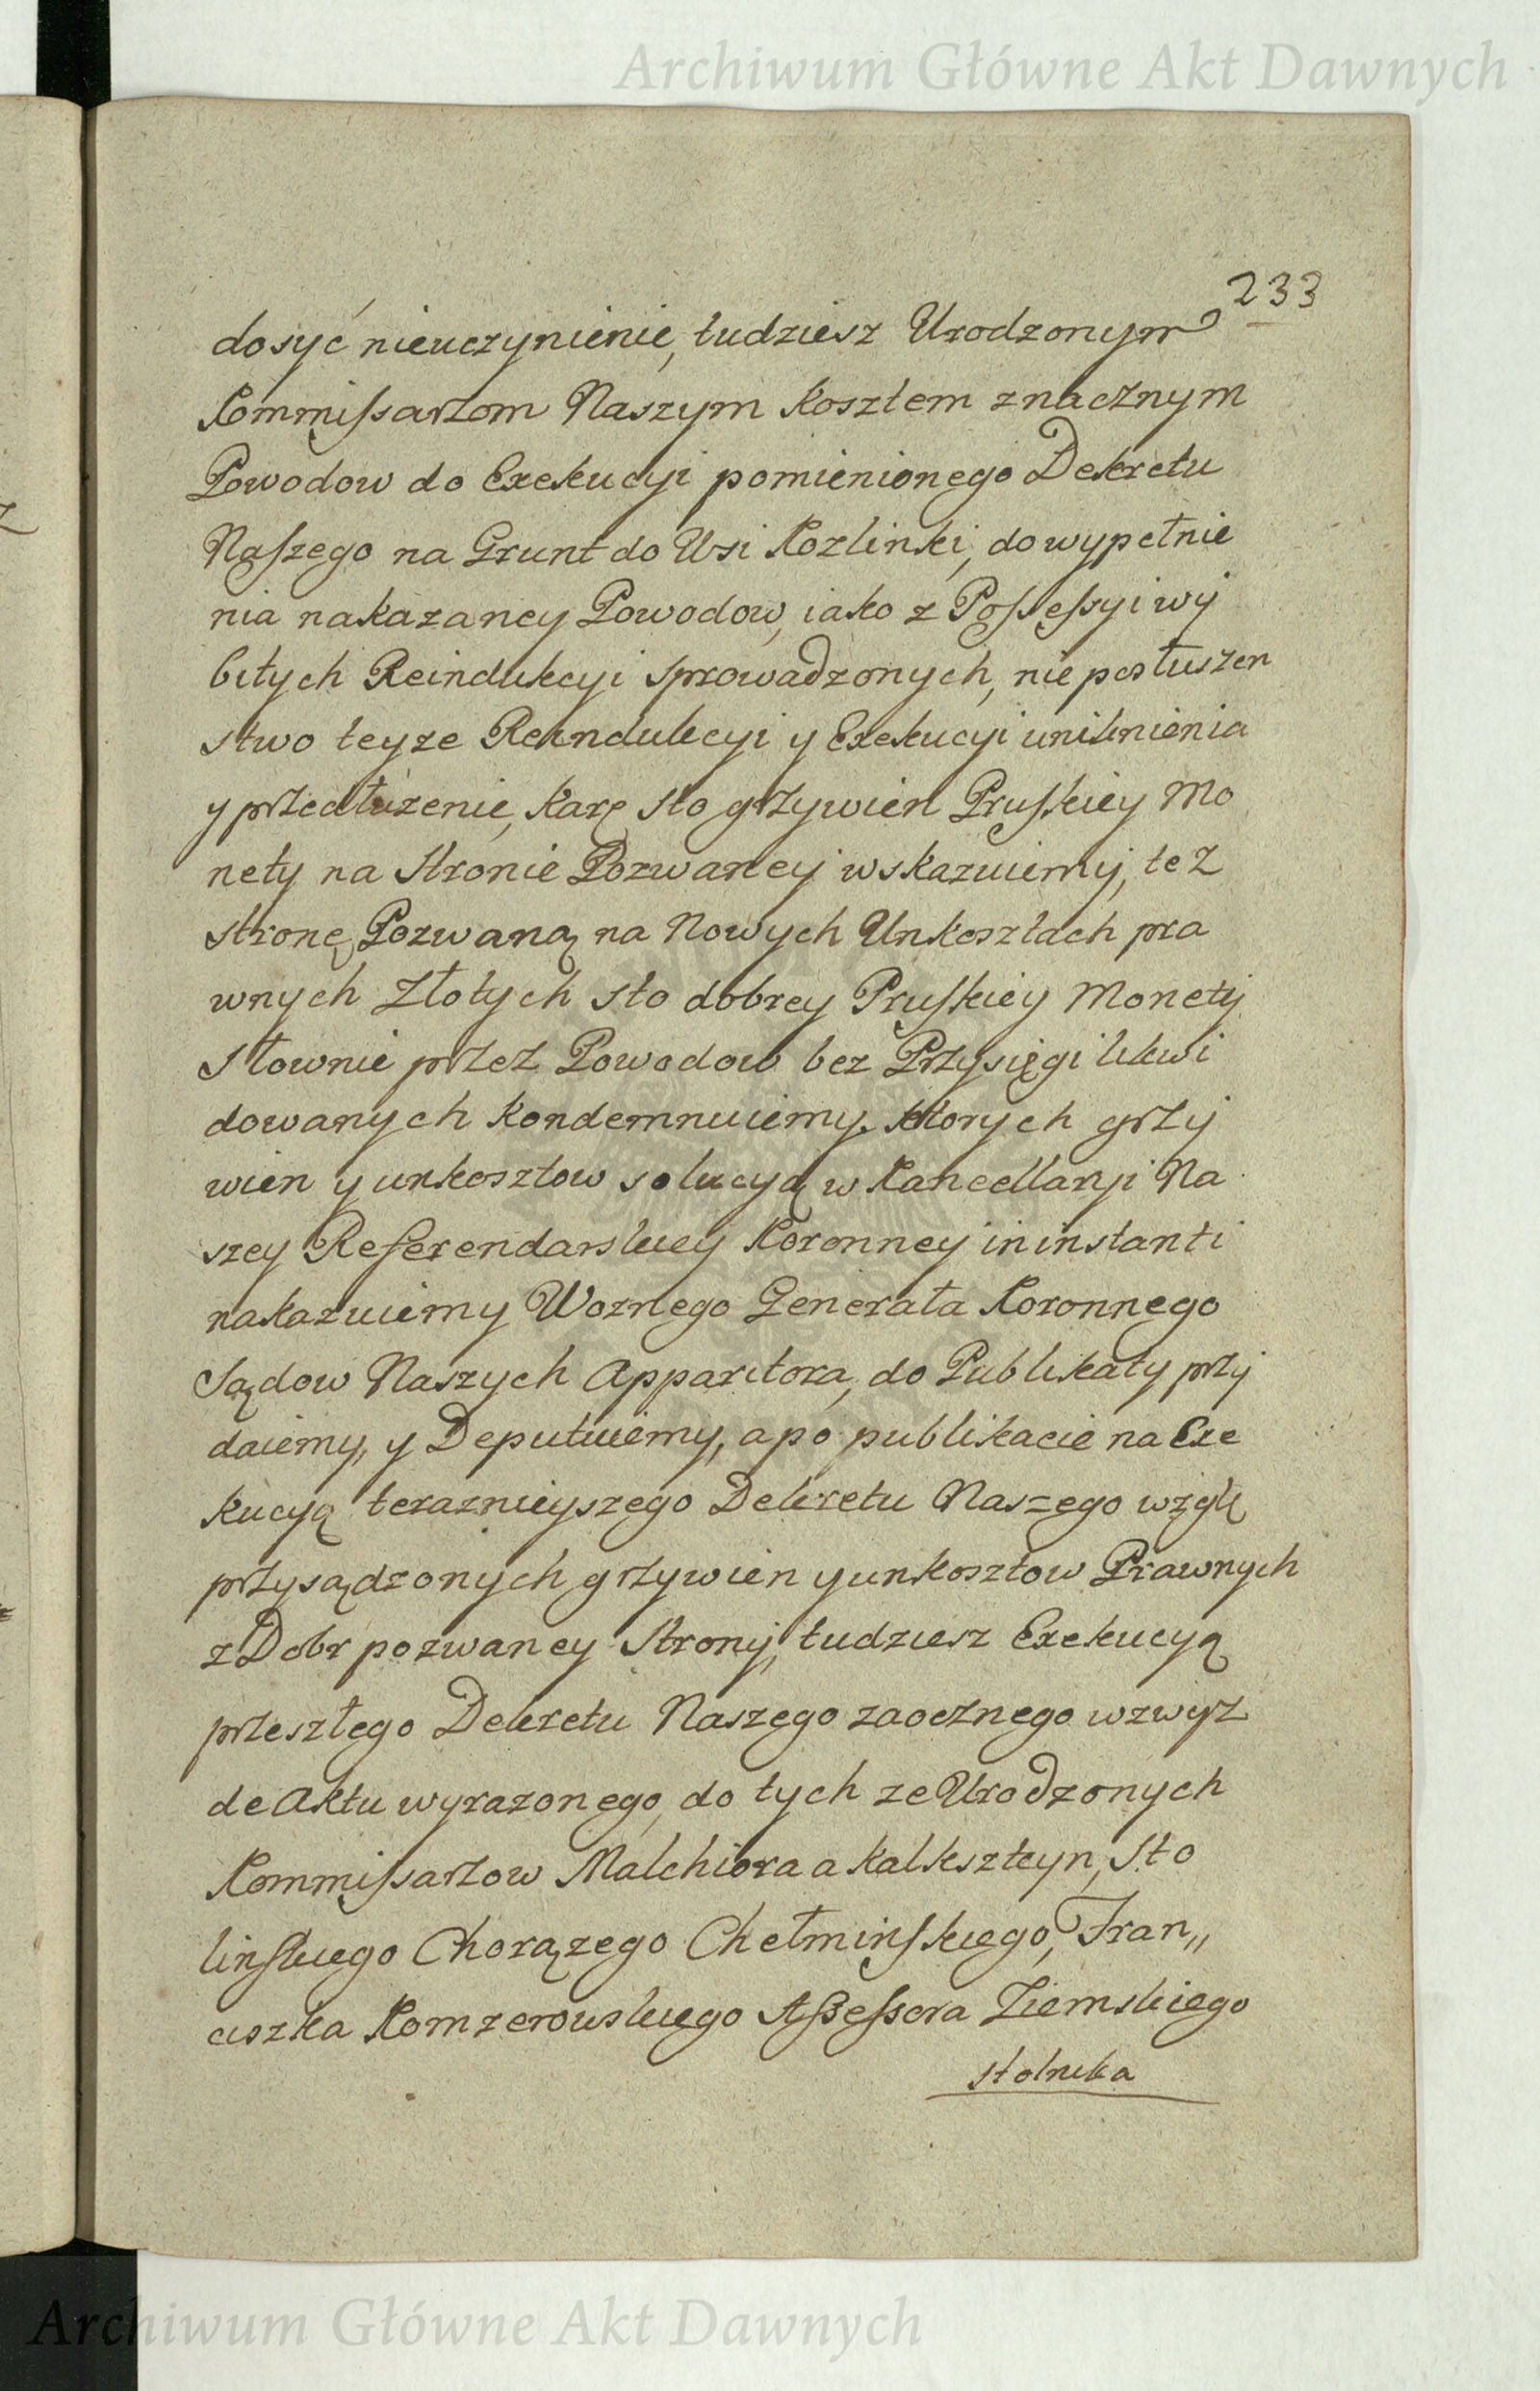 Archiwum Główne Akt Dawnych
233
dosyć nieuczynienie, tudziesz Urodzonym
Kommissarzom Naszym kosztem znacznym
Powodow do Exekucyi pomienionego Dekretu
Naszego na Grunt do Wsi Kozlinki, do wypełnie
nia nakazaney Powodow, iako z Possessyi wy
bitych Reindukcyi sprowadzonych, nieposłuszen
stwo teyze Reindukcyi y Exekucyi uniknienia
y przedłużenie, karę sto grzywien Pruskiey Mo
nety na Stronie Pozwaney wskazuiemy, tez
stronę Pozwaną na Nowych Unkosztach pra
wnych Złotych sto dobrey Pruskiey Monety
Słownie przez Powodow bez Przysięgi likwi
dowanych kondemnuiemy. ktorych grzy
wien y unkosztow solucyą w Kancellaryi Na
szey Referendarskiey Koronney in instanti
nakazuiemy Woznego Generała Koronnego
Sądow Naszych Apparitora, do Publikaty przy
daiemy, y Deputuiemy, a po publikacie na Exe
kucyą teraznieyszego Dekretu Naszego wzglę
przysądzonych grzywien y unkosztow Prawnych
z Dobr pozwaney Strony, tudziesz Exekucyą
przeszłego Dekretu Naszego zaocznego wzwyz
de Aktu wyrazonego, do tych ze Urodzonych
Kommissarzow Malchiora a Kalkszteyn, Sto
linskiego Chorązego Chełminskiego, Fran,,
ciszka Komzerowskiego Assessora Ziemskiego
stolnika
Archiwum Główne Akt Dawnych